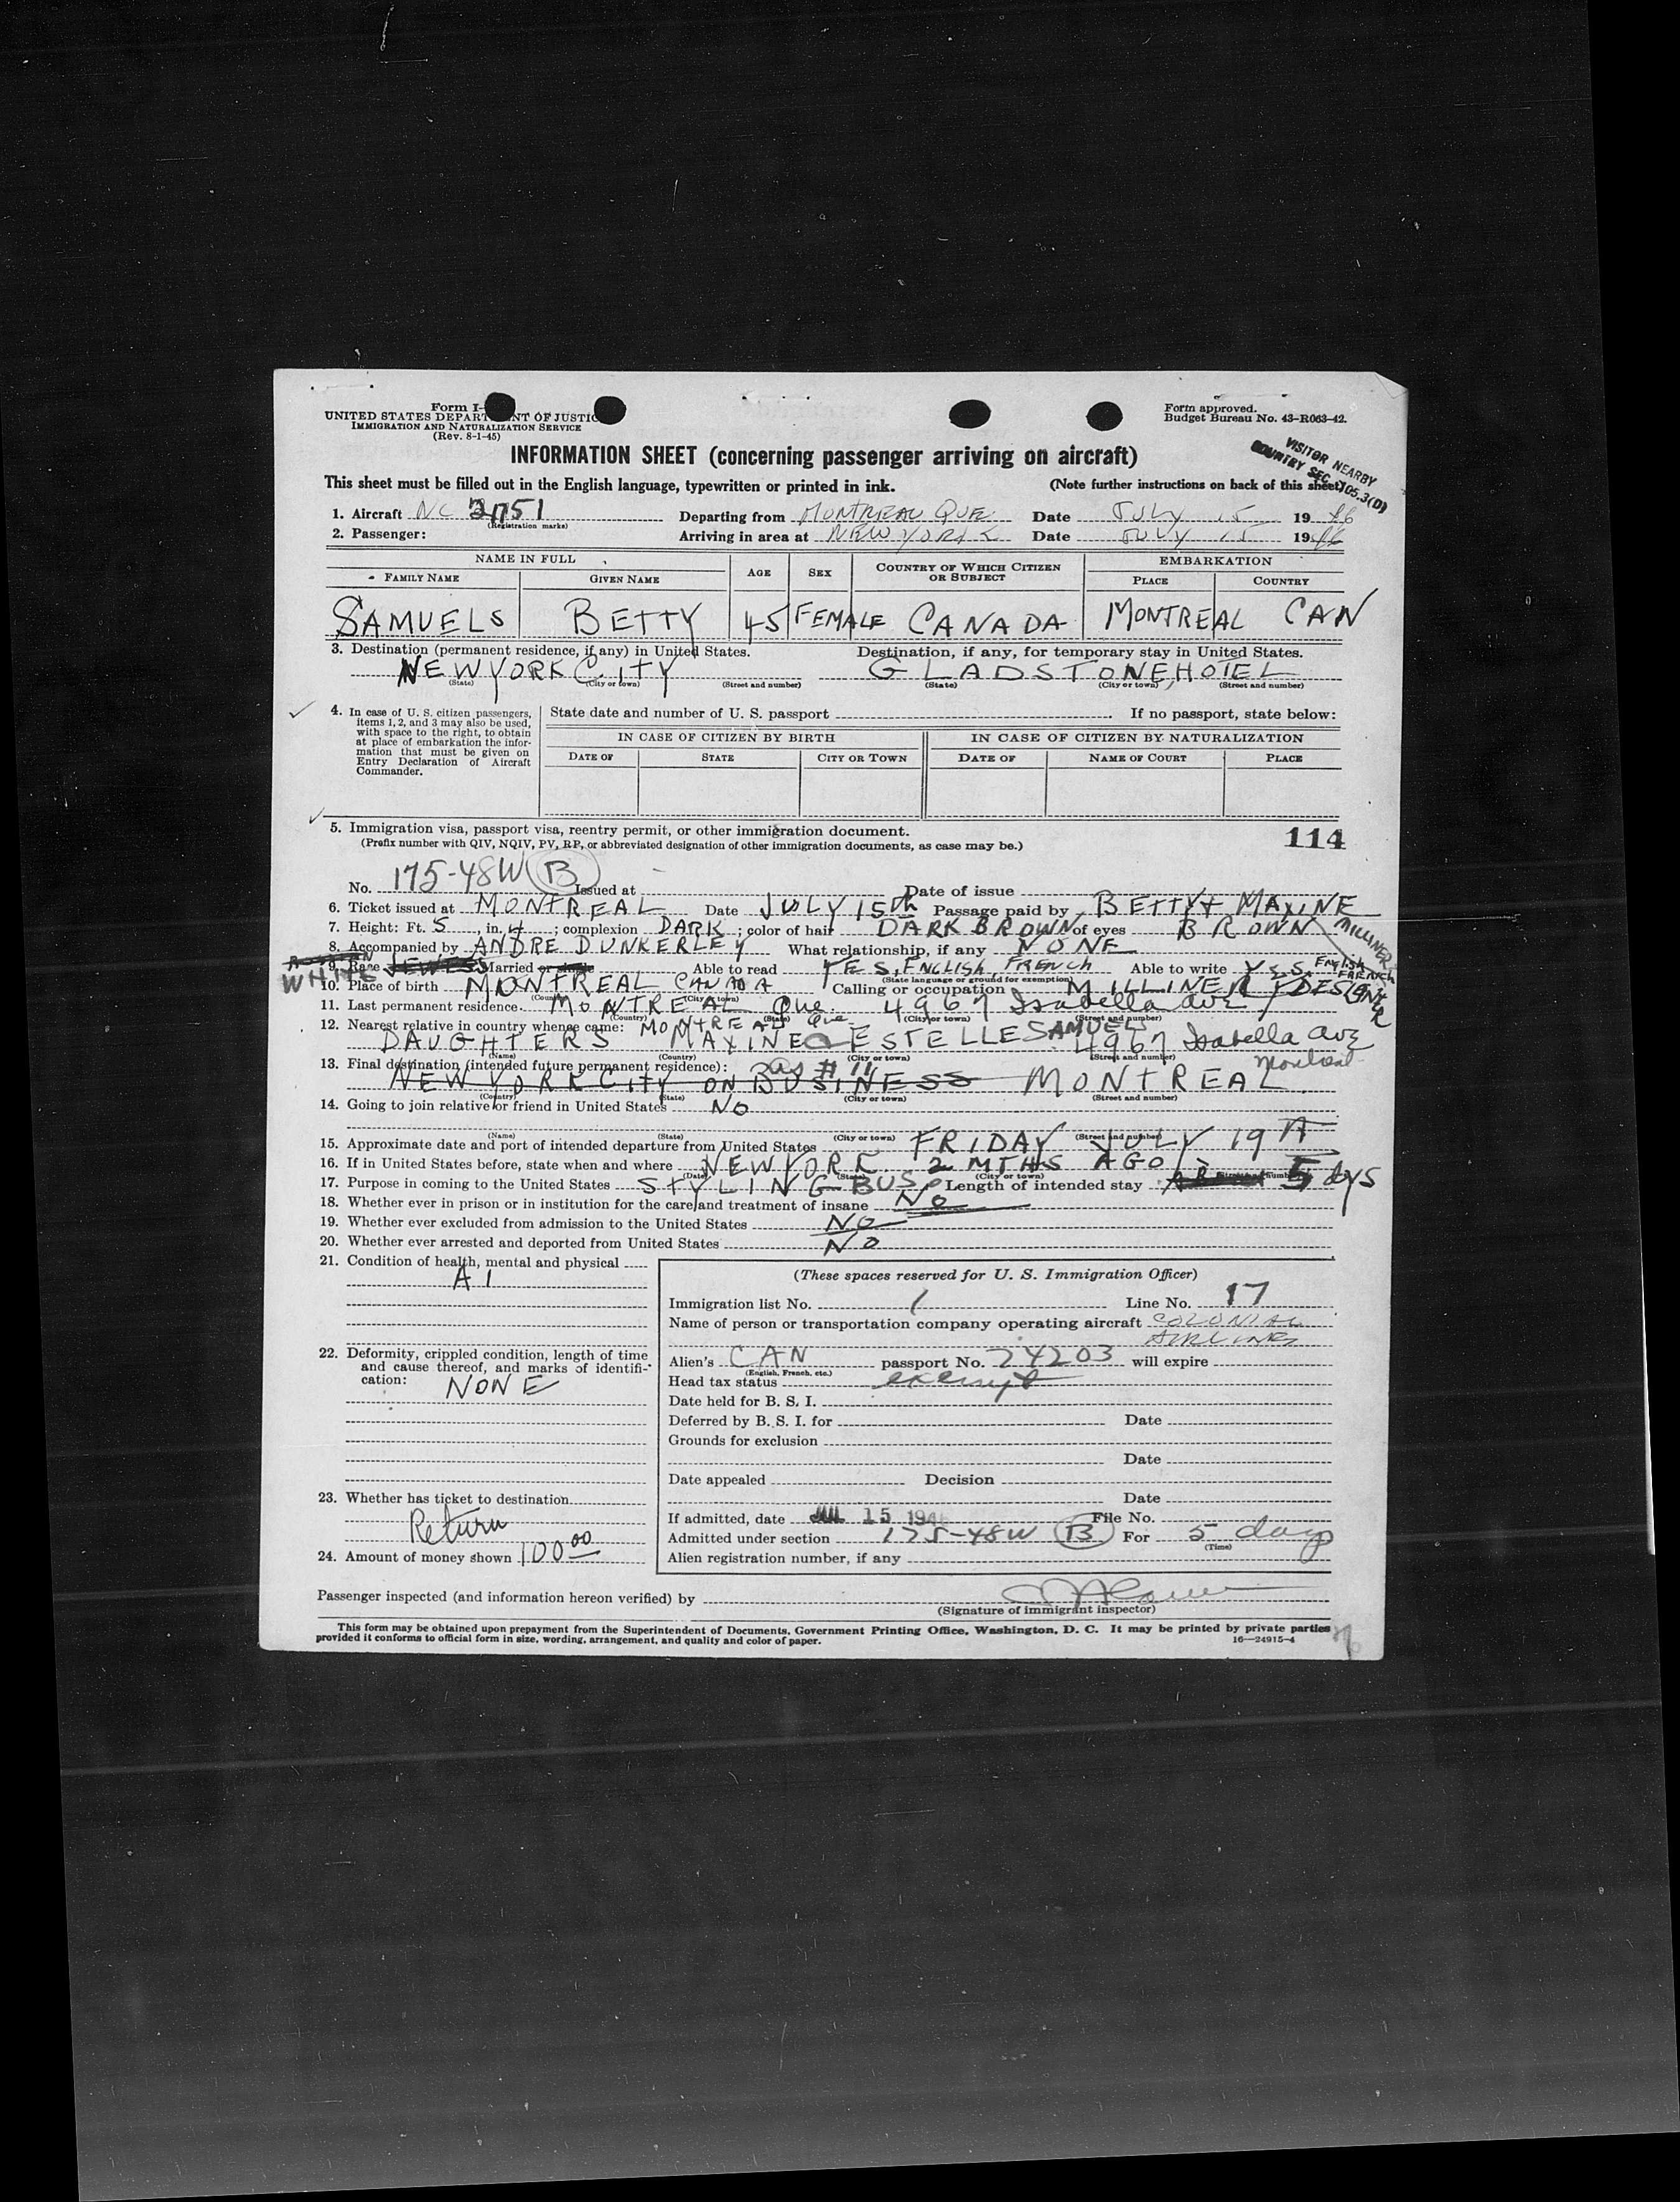 Form I-
UNITED STATES DEPARTMENT OF JUSTICE
IMMIGRATION AND NATURALIZATION SERVICE
(Rev. 8-1-45)
Form approved.
Budget Bureau No. 43-R063-42.
INFORMATION SHEET (concerning passenger arriving on aircraft)
VISITOR NEARBY
COUNTRY SEC. 105.3(D)
This sheet must be filled out in the English language, typewritten or printed in ink. (Note further instructions on back of this sheet)
1. Aircraft NC 21751 Departing from MONTREAL QUE Date JULY 15 1946
(Registration marks)
2. Passenger: Arriving in area at NEW YORK Date JULY 15 1946
NAME IN FULL AGE SEX COUNTRY OF WHICH CITIZEN OR SUBJECT EMBARKATION
FAMILY NAME GIVEN NAME PLACE COUNTRY
SAMUELS BETTY 45 FEMALE CANADA MONTREAL CAN
3. Destination (permanent residence, if any) in United States. Destination, if any, for temporary stay in United States.
NEW YORK CITY GLADSTONE HOTEL
(State) (City or town) (Street and number) (State) (City or town) (Street and number)
4. In case of U. S. citizen passengers, items 1, 2, and 3 may also be used, with space to the right, to obtain at place of embarkation the information that must be given on Entry Declaration of Aircraft Commander.
State date and number of U. S. passport If no passport, state below:
IN CASE OF CITIZEN BY BIRTH IN CASE OF CITIZEN BY NATURALIZATION
DATE OF STATE CITY OR TOWN DATE OF NAME OF COURT PLACE
5. Immigration visa, passport visa, reentry permit, or other immigration document. 114
(Prefix number with QIV, NQIV, PV, RP, or abbreviated designation of other immigration documents, as case may be.)
No. 175-48W B Issued at Date of issue
6. Ticket issued at MONTREAL Date JULY 15th Passage paid by BETTY & MAXINE
7. Height: Ft. 5, in. 4; complexion DARK; color of hair DARK BROWN of eyes BROWN
8. Accompanied by ANDRE DUNKERLEY What relationship, if any NONE
MILLINERY
WHITE
9. Race JEWESS Married or single Able to read YES, ENGLISH, FRENCH Able to write YES ENGLISH FRENCH
(State language or ground for exemption)
10. Place of birth MONTREAL CANADA Calling or occupation MILLINERY DESIGNER
(Country) (City or town)
11. Last permanent residence MONTREAL Que. 4967 Isabella Ave
(Country) (State) (City or town) (Street and number)
12. Nearest relative in country whence came: MONTREAL Que
DAUGHTERS MAXINE & ESTELLE SAMUELS 4967 Isabella Ave
(Name) (Country) (City or town) (Street and number)
Montreal
13. Final destination (intended future permanent residence): as # 11
NEW YORK CITY ON BUSINESS MONTREAL
(Country) (State) (City or town) (Street and number)
14. Going to join relative or friend in United States NO
(Name) (State) (City or town) (Street and number)
15. Approximate date and port of intended departure from United States FRIDAY JULY 19th
16. If in United States before, state when and where NEW YORK 2 MTHS AGO
(Date) (State) (City or town) (Street and number)
17. Purpose in coming to the United States STYLING BUS. Length of intended stay 5 dys
18. Whether ever in prison or in institution for the care and treatment of insane NO
19. Whether ever excluded from admission to the United States NO
20. Whether ever arrested and deported from United States NO
21. Condition of health, mental and physical
A 1
22. Deformity, crippled condition, length of time and cause thereof, and marks of identification: NONE
23. Whether has ticket to destination
Return
24. Amount of money shown 100.00
(These spaces reserved for U. S. Immigration Officer)
Immigration list No. 1 Line No. 17
Name of person or transportation company operating aircraft COLONIAL
AIRLINES
Alien's CAN passport No. 74203 will expire
(English, French, etc.)
Head tax status exempt
Date held for B. S. I.
Deferred by B. S. I. for Date
Grounds for exclusion
Date
Date appealed Decision
Date
If admitted, date JUL 15 1946 File No.
Admitted under section 175-48W B For 5 days
(Time)
Alien registration number, if any
Passenger inspected (and information hereon verified) by
(Signature of immigrant inspector)
This form may be obtained upon prepayment from the Superintendent of Documents, Government Printing Office, Washington, D. C. It may be printed by private parties
provided it conforms to official form in size, wording, arrangement, and quality and color of paper.
16—24915-4